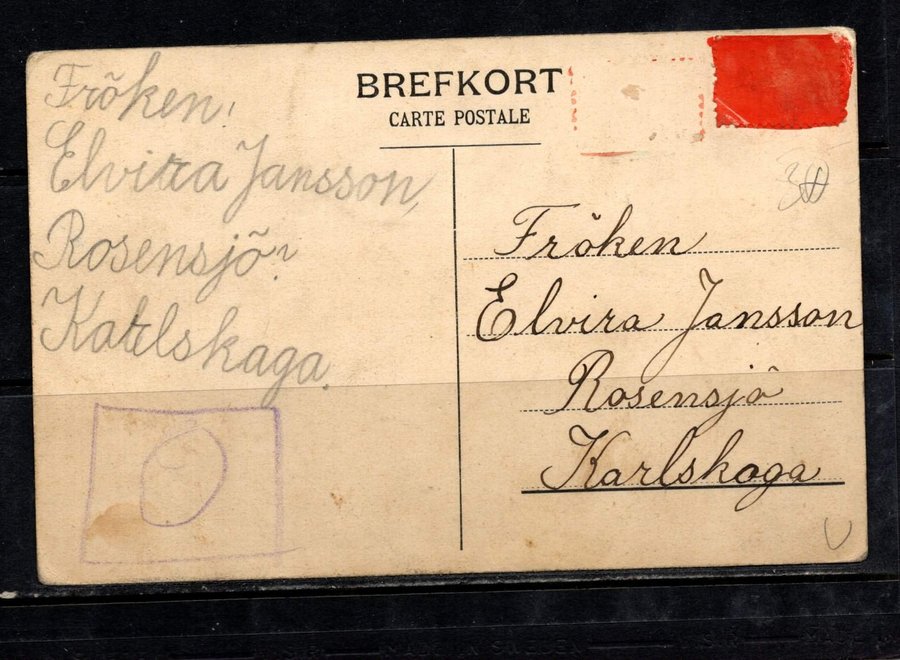 BREFKORT
CARTE POSTALE
Fröken,
Elvira Jansson,
Rosensjö
Karlskaga.
Fröken
Elvira Jansson
Rosensjö
Karlskoga